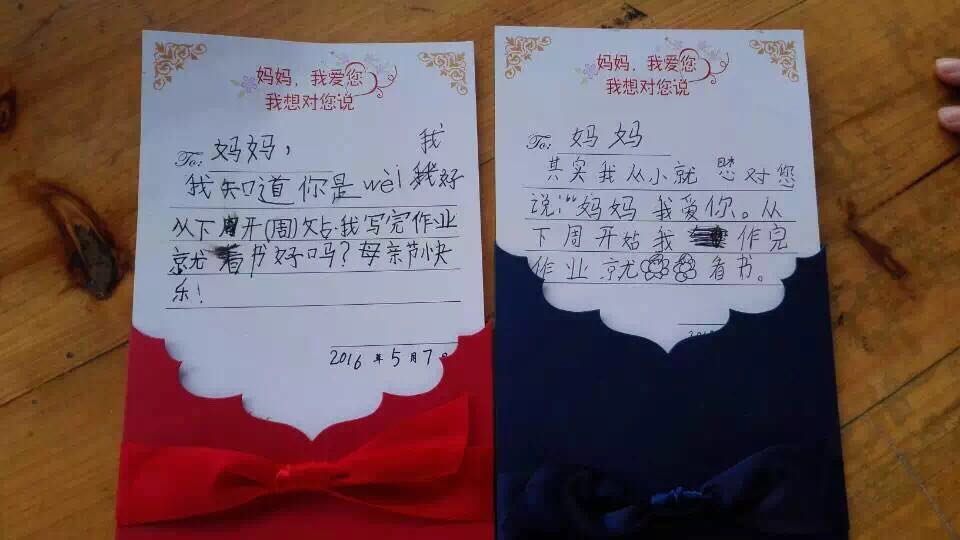 妈妈，我爱您
我想对您说
To: 妈妈，
我
我知道你是wèi我好
从下周开(周)始我写完作业
就看书好吗？母亲节快
乐！
2016年5月7日
妈妈，我爱您
我想对您说
To: 妈妈
其实我从小就想对您
说："妈妈我爱你。从
下周开始我作完
作业就看书。